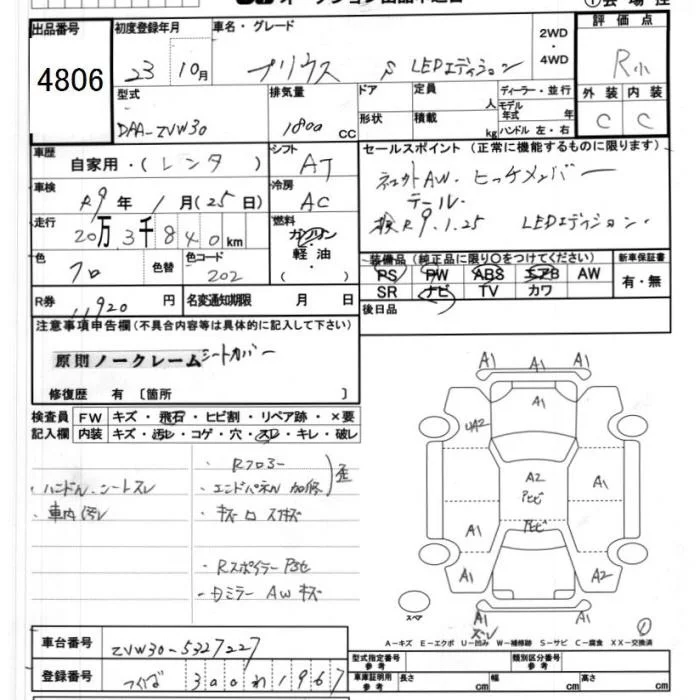 出品番号 4806
初度登録年月 23 10月
車名・グレード プリウス S LEDエディション
2WD・4WD
評価点 R小
外装 内装
C C
型式 DAA-ZVW30
排気量 1800 cc
ドア 定員 人
形状 積載 kg
ディーラー・並行
モデル年式 年
ハンドル 左・右
車歴 自家用・(レンタ)
シフト AT
車検 R9年1月(25日)
冷房 AC
走行 20万3千840km
燃料 ガソリン・軽油・( )
色 クロ 色替 色コード 202
R券 11920円 名変通知期限 月 日
セールスポイント (正常に機能するものに限ります)
テール.
検R9.1.25 LEDエディション.
装備品 (純正品に限り〇をつけてください)
PS PW ABS エアB AW
SR ナビ TV カワ
新車保証書
有・無
後日品
注意事項申告欄(不具合内容等は具体的に記入して下さい)
原則ノークレーム シートカバー
修復歴 有 〔箇所 〕
検査員 FW キズ・飛石・ヒビ割・リペア跡・×要
記入欄 内装 キズ・汚レ・コゲ・穴・スレ・キレ・破レ
・Rフロアー
・ハンドル.シートスレ
・エンドパネル 加修 歪
・車内汚レ
・キズ 凹 スリキズ
・Rスポイラー
・ミラー AWキズ
A1 A1 A1
A1
4A2
A2
A1
A1
A1
A1 A2
A1 A1
スペア
①
A-キズ E-エクボ U-凹み W-補修跡 S-サビ C-腐食 XX-交換済
車台番号 ZVW30-5327227
登録番号 つくば 300 わ 1967
型式指定番号 参考
類別区分番号 参考
車庫証明用 参考 長さ cm 幅 cm 高さ cm